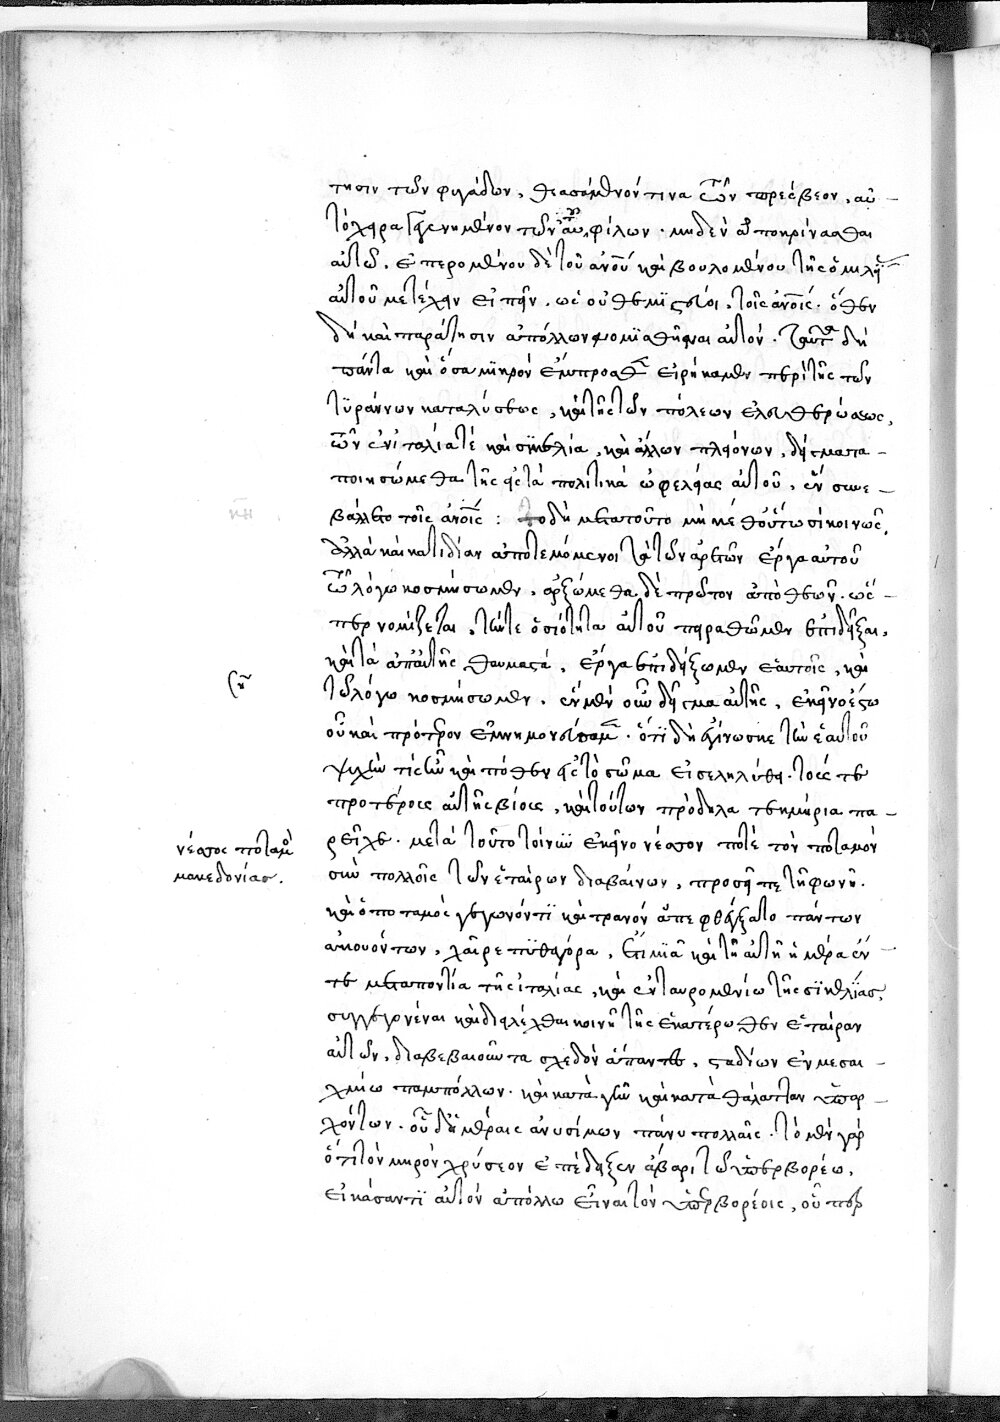 τησιν τῶν φυγάδων, θεασάμενόν τινα τῶν πρέσβεον, αὐ-
τόχειρα γεγενημένον τῶν αὐτοῦ φίλων. μηδὲν ἀποκρίνασθαι
αὐτῶ. ἐπερομένου δὲ τοῦ ἀνοῦ καὶ βουλομένου τῆς ὁμιλί(ας)
αὐτοῦ μετέχειν εἰπεῖν, ὡς οὐ θεμιστεύοι, τοῖς ἀνοις. ὅθεν
δὴ καὶ παραίτησιν ἀπόλλωνα νομισθῆναι αὐτόν. ταῦτα δὴ
πάντα καὶ ὅσα μικρὸν ἔμπροσθεν εἰρήκαμεν περὶ τῆς τῶν
τϋράννων καταλύσεως, καὶ τῆς τῶν πόλεων ἐλευθερώσεως,
τῶν ἐν ἰταλία τὲ καὶ σικελία, καὶ ἄλλων πλειόνων, δείγματα
ποιησώμεθα τῆς εἰς τὰ πολιτικὰ ὠφελείας αὐτοῦ, ἣν συνε-
βάλλετο τοῖς ἀνοις: τοδὴ μετατοῦτο μηκέθ' οὕτωσὶ κοινῶς,
ἀλλὰ καὶ κατιδίαν ἀποτεμόμενοι τὰ τῶν ἀρετῶν ἔργα αὐτοῦ
τῶ λόγω κοσμήσωμεν, ἀρξώμεθα δὲ πρῶτον ἀπὸ θεῶν. ὥσ-
περ νομίζεται, τήν τε ὁσιότητα αὐτοῦ πειραθῶμεν ἐπιδεῖξαι,
καὶ τὰ ἀπ' αὐτῆς θαυμαστά, ἔργα ἐπιδείξωμεν ἑαυτοῖς, καὶ
τῶ λόγω κοσμήσωμεν. ἓν μὲν οὖν δεῖγμα αὐτῆς, ἐκεῖνο ἔστω
οὗ καὶ πρότερον ἐμνημονεύσαμεν. ὅτι δὴ ἐγίνωσκε τὴν ἑαυτοῦ
ψυχὴν τίς ἦν καὶ πόθεν εἰς τὸ σῶμα εἰσεληλύθει. τούς τε
προτέρους αὐτῆς βίους, καὶ τούτων πρόδηλα τεκμήρια πα-
ρεῖχε. μετὰ τοῦτο τοίνυν ἐκεῖνο νέσσον ποτὲ τὸν ποταμὸν
σὺν πολλοῖς τῶν ἑταίρων διαβαίνων, προσεῖπε τῆ φωνῆ.
καὶ ὁ ποταμὸς γεγωνόν τι καὶ τρανὸν ἀπεφθέγξατο πάντων
ἀκουόντων, χαῖρε πϋθαγόρα, ἔτι μιᾶ καὶ τῆ αὐτῆ ἡμέρα ἔν
τε μεταποντία τῆς ἰταλίας, καὶ ἐν ταυρομενίω τῆς σϊκελΐας,
συγγεγονέναι καὶ διειλέχθαι κοινῆ τῆς ἑκατέρωθεν ἑταίραν
αὐτῶν, διαβεβαιοῦνται σχεδὸν ἅπαντες, σταδίων ἐν μεσαι-
χμίω παμπόλλων. καὶ κατὰ γῆν καὶ κατὰ θάλατταν ὑπαρ-
χόντων. οὐδ' ἡμέραις ἀνυσίμων πάνυ πολλαῖς. τὸ μὲν γὰρ
ὅτι τὸν μηρὸν χρύσεον ἐπέδειξεν ἀβάριδι τῶ ὑπερβορέω,
εἰκάσαντι αὐτὸν ἀπόλλω εἶναι τὸν ὑπερβορέοις, οὗ περ
κη
κη
νέσσος ποταμὸς
μακεδονίας.